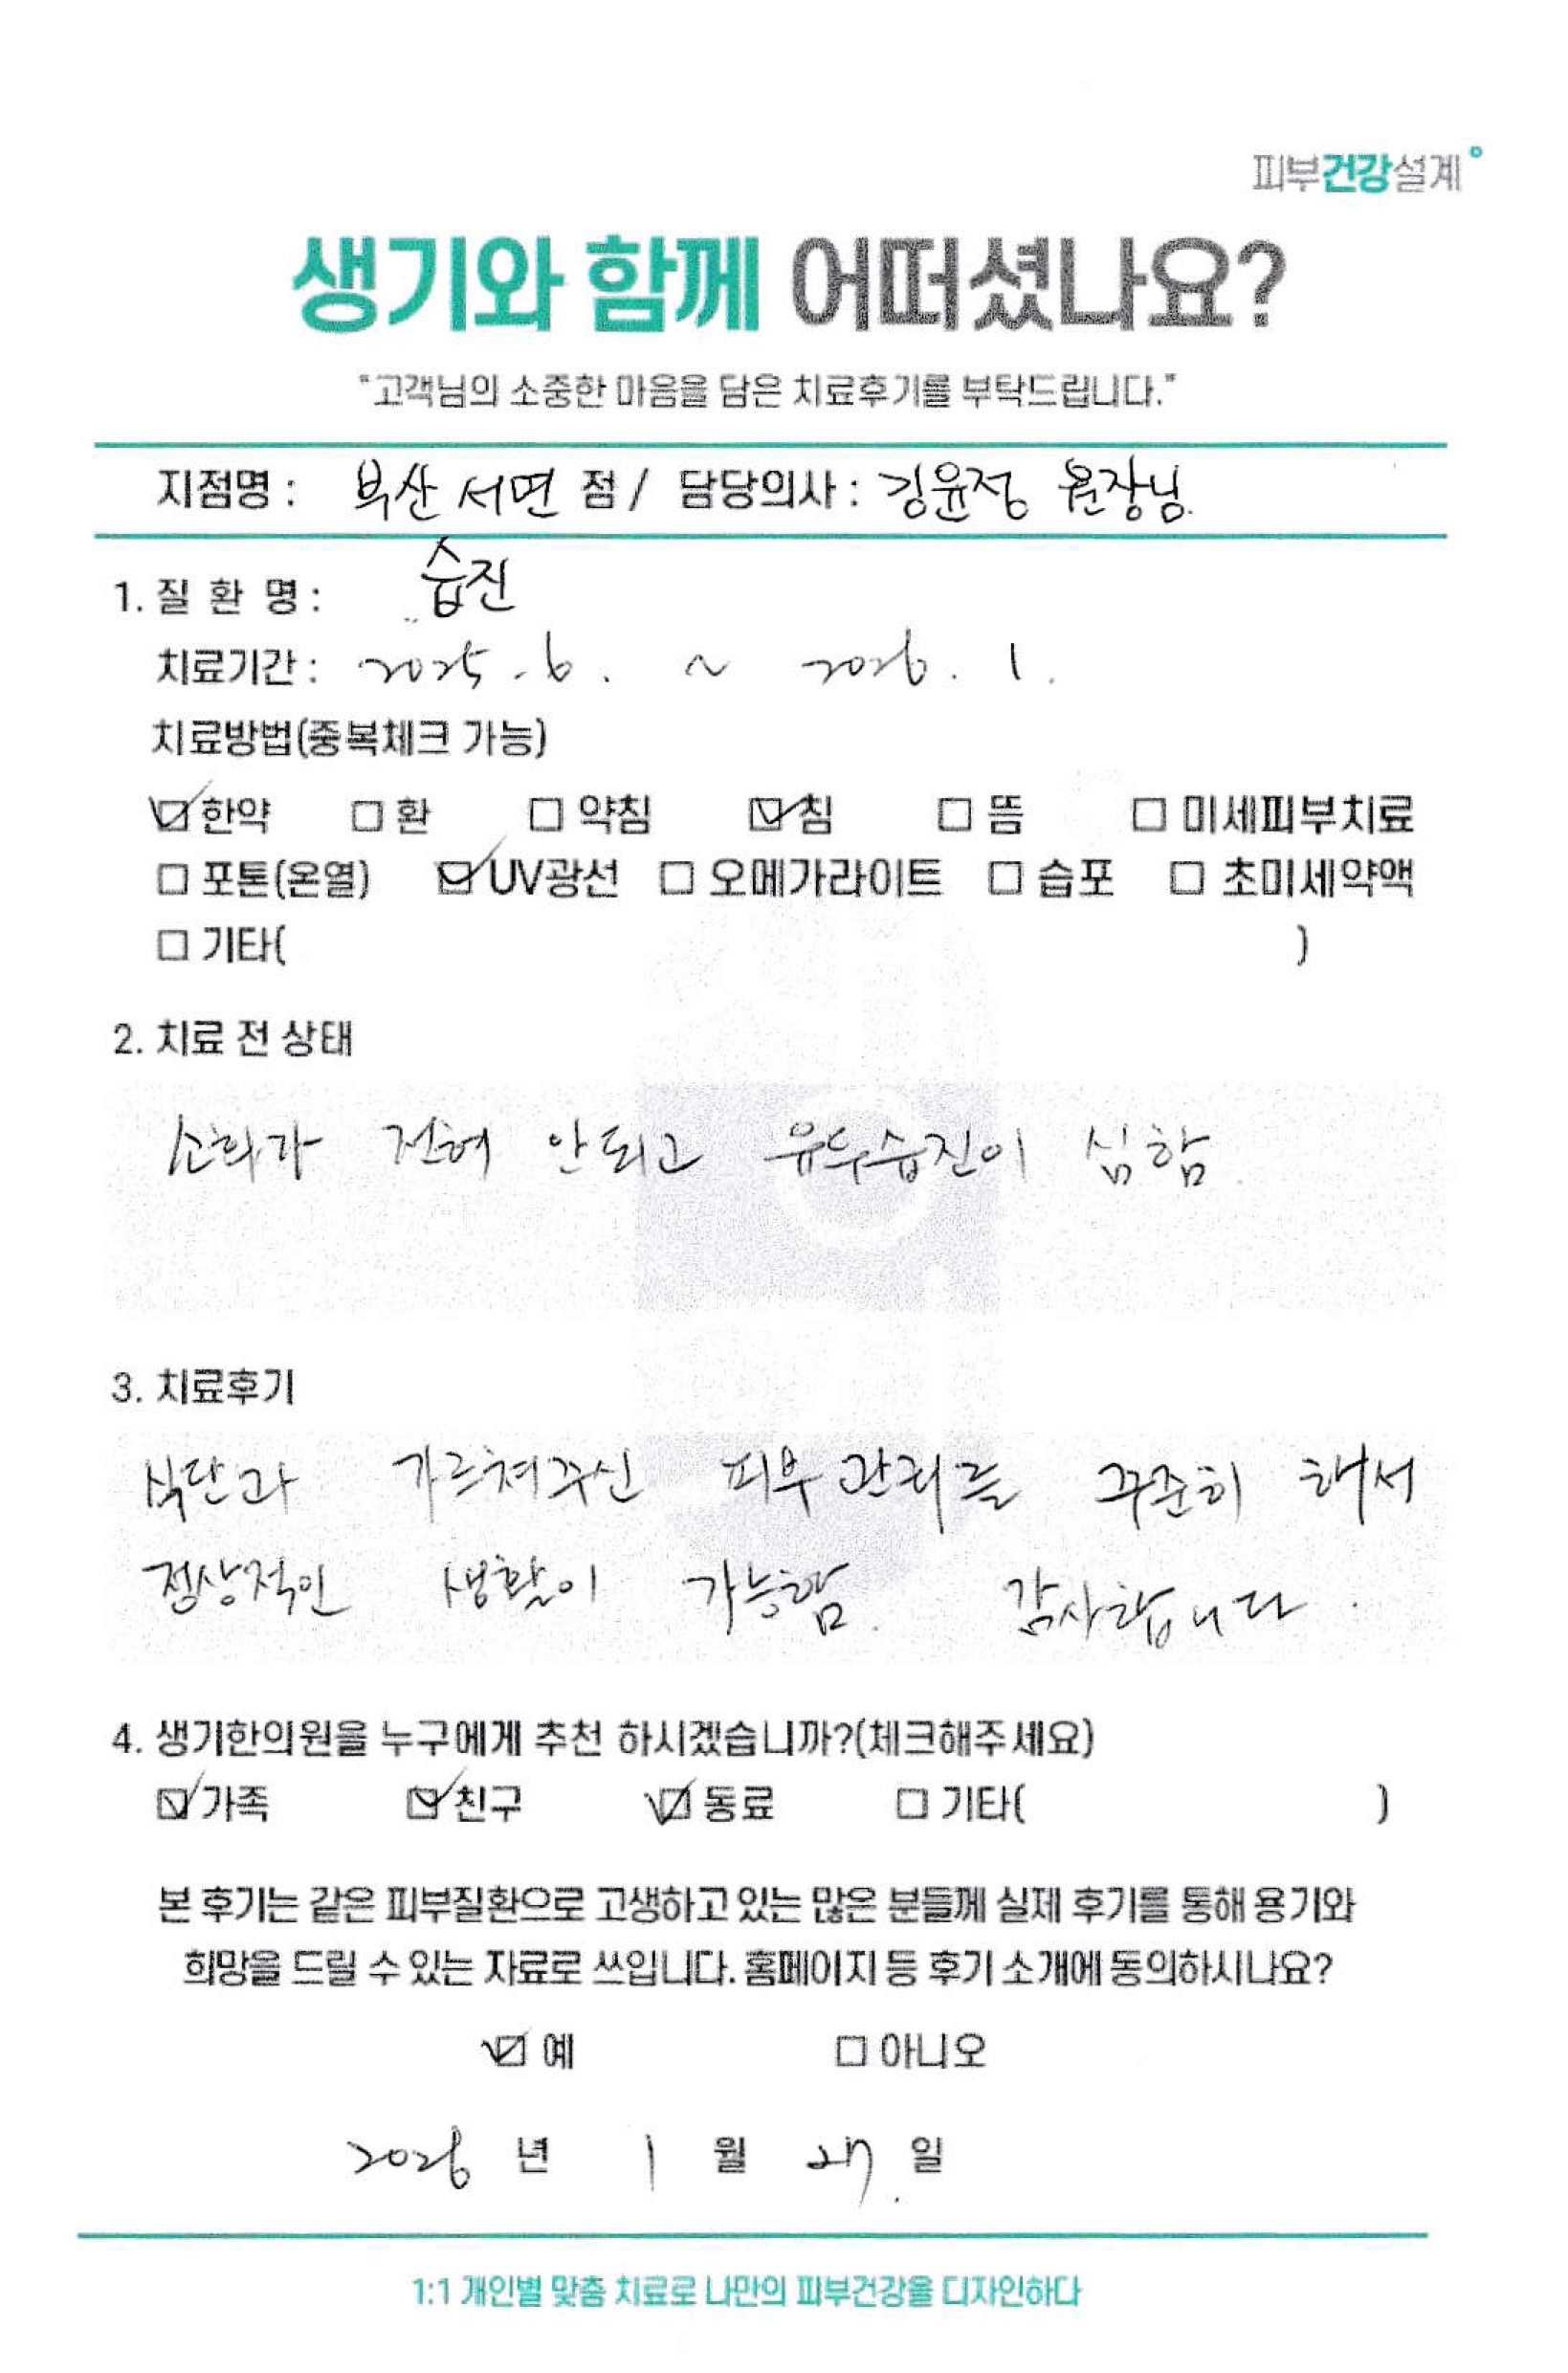 피부건강설계
생기와 함께 어떠셨나요?
"고객님의 소중한 마음을 담은 치료후기를 부탁드립니다."
지점명 : 부산 서면 점 / 담당의사 : 김윤정 원장님.
1. 질 환 명 : 습진
치료기간 : 2025. 6. ~ 2026. 1.
치료방법(중복체크 가능)
☑ 한약 □ 환 □ 약침 ☑ 침 □ 뜸 □ 미세피부치료
□ 포톤(온열) ☑ UV광선 □ 오메가라이트 □ 습포 □ 초미세약액
□ 기타( )
2. 치료 전 상태
소화가 전혀 안되고 유두습진이 심함.
3. 치료후기
식단과 가르쳐주신 피부관리를 꾸준히 해서
정상적인 생활이 가능함. 감사합니다.
4. 생기한의원을 누구에게 추천 하시겠습니까?(체크해주세요)
☑ 가족 ☑ 친구 ☑ 동료 □ 기타( )
본 후기는 같은 피부질환으로 고생하고 있는 많은 분들께 실제 후기를 통해 용기와
희망을 드릴 수 있는 자료로 쓰입니다. 홈페이지 등 후기 소개에 동의하시나요?
☑ 예 □ 아니오
2026 년 1 월 27. 일
1:1 개인별 맞춤 치료로 나만의 피부건강을 디자인하다